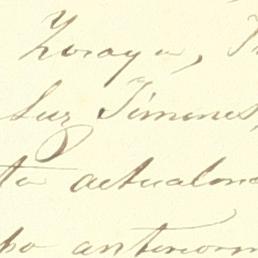 Zoraya, T
Luz Jimenes,
ta actualme
po anteriorm